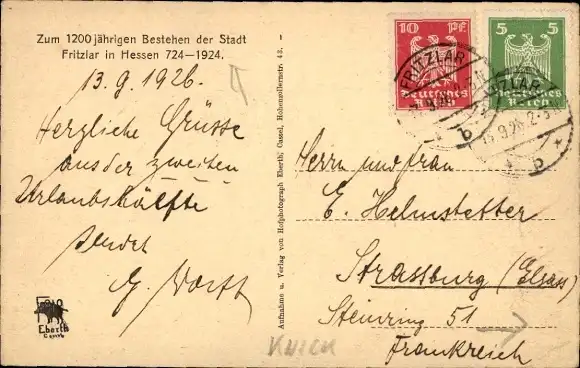 Zum 1200 jährigen Bestehen der Stadt
Fritzlar in Hessen 724—1924.
13.9.1926.
Herzliche Grüsse
aus der zweiten
Urlaubshälfte
sendet
G.
Eberth
Cassel
Aufnahme u. Verlag von Hofphotograph Eberth, Cassel, Hohenzollernstr. 43.
10 PF
Deutsches
Reich
5 5
Deutsches
Reich
FRITZLAR
b
b
Herrn und Frau
E. Helmstetter
Strassburg (Elsass)
Steinring 51
Frankreich
KNICK